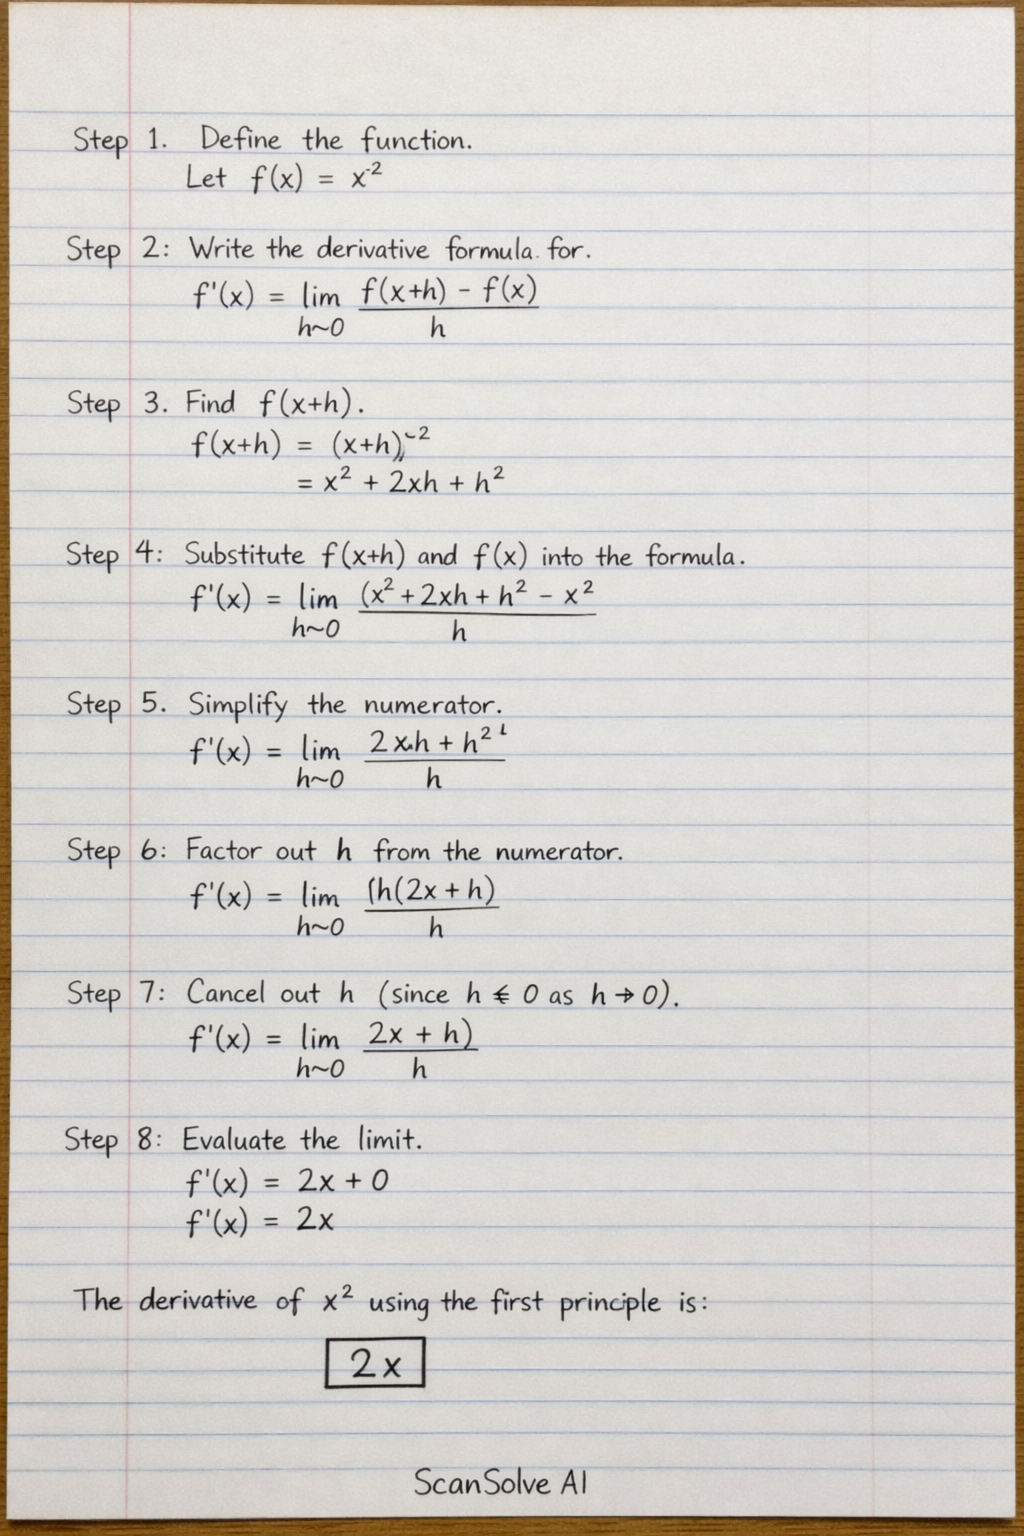 Step 1. Define the function.
Let f(x) = x⁻²
Step 2: Write the derivative formula for.
f'(x) = lim h~0 f(x+h) - f(x) / h
Step 3. Find f(x+h).
f(x+h) = (x+h)⁻²
= x² + 2xh + h²
Step 4: Substitute f(x+h) and f(x) into the formula.
f'(x) = lim h~0 (x² + 2xh + h² - x² / h
Step 5. Simplify the numerator.
f'(x) = lim h~0 2xh + h² / h
Step 6: Factor out h from the numerator.
f'(x) = lim h~0 (h(2x + h) / h
Step 7: Cancel out h (since h 0 as h → 0).
f'(x) = lim h~0 2x + h) / h
Step 8: Evaluate the limit.
f'(x) = 2x + 0
f'(x) = 2x
The derivative of x² using the first principle is:
2x
ScanSolve AI